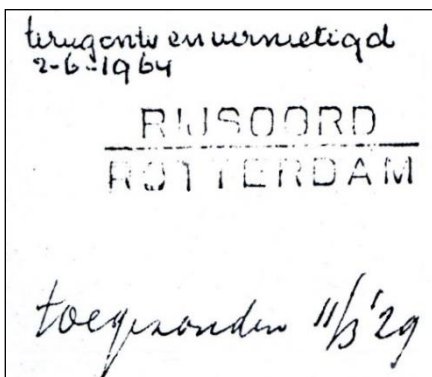 terugontv en vernietigd
2-6-1964
RIJSOORD
ROTTERDAM
toegezonden 11/3 '29